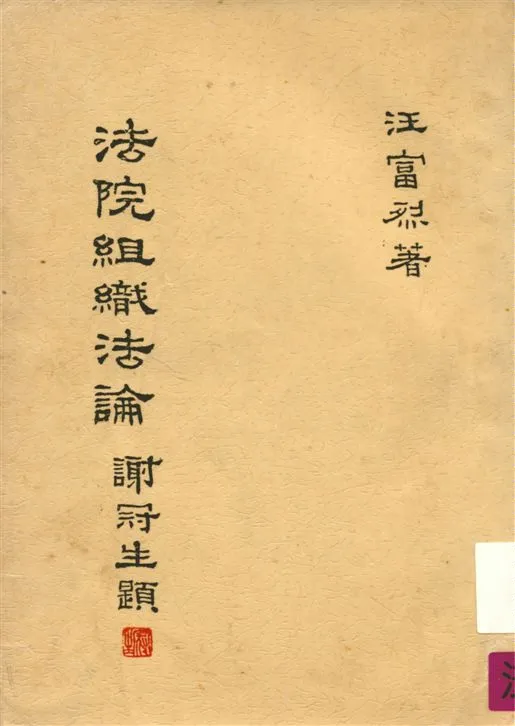 汪富烈著
法院組織法論
謝冠生題